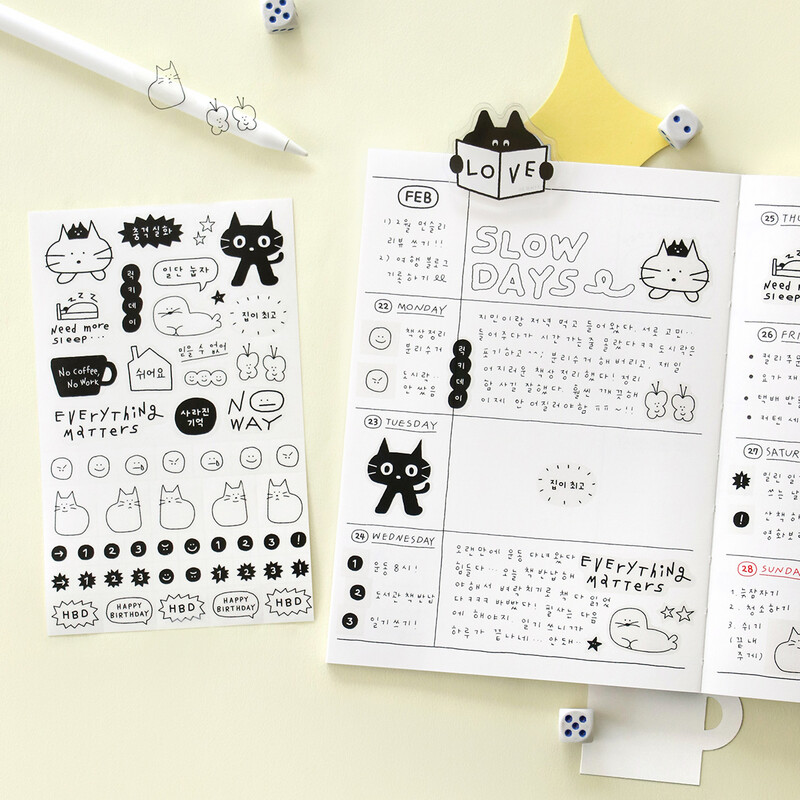 LOVE
FEB
1) 2월 먼슬리
리뷰 쓰기!!
2) 여행 블로그
기록하기
SLOW
DAYS
22 MONDAY
책상정리
분리수거
도시락…
안 쌌음
럭키데이
지민이랑 저녁 먹고 들어왔다. 서로 고민…
들어주다가 시간 가는 줄 몰랐다ㅋㅋ 도시락은
포기하고 ^^; 분리수거 해버리고, 제일
어지러운 책상 정리했다! 정리
이제 안 어질러야함 ㅠㅠ~!!
23 TUESDAY
집이 최고
24 WEDNESDAY
1 운동 8시!
2 도서관 책반납
3 일기 쓰기!
오랜만에 운동 다녀왔다
힘들다… 오늘 책반납해
야해서 벼락치기로 책 다 읽었
다ㅋㅋㅋ 바빴다! 필사는 다음
에 해야지 일기 쓰니까
하루가 끝나네… 안돼…
EVERYTHING
MATTERS
25 THU
Need mo
slee
26 FRI
27 SATU
28 SUNDA
1. 늦잠자기
2. 청소하기
3. 쉬기
충격실화
럭키데이
일단 눕자
zzz
Need more
sleep...
집이 최고
믿을 수 없어
No Coffee,
No Work.
쉬어요
EVERYTHING
MATTERS
사라진
기억
NO
WAY
→ 1 2 3 1 2 3 !
→ 1 2 3 1 2 3 !
HBD
HAPPY
BIRTHDAY
HBD
HAPPY
BIRTHDAY
HBD